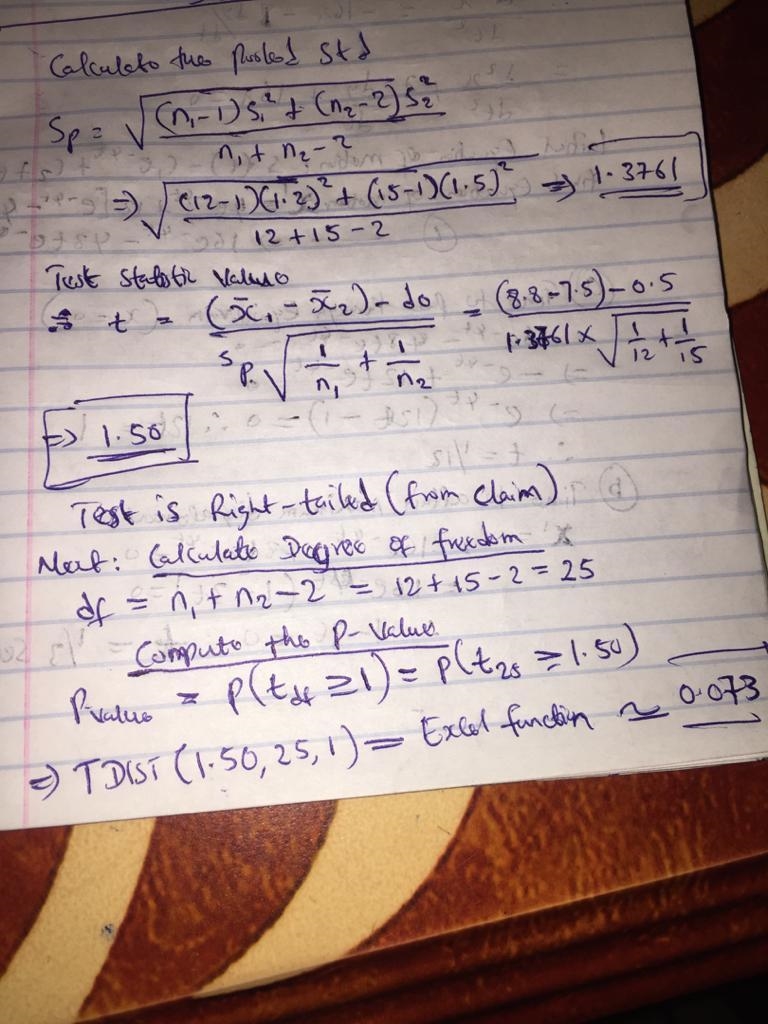 Calculate the Pooled Std
Sp = √((n₁-1)S₁² + (n₂-2)S₂² / n₁ + n₂ - 2)
⇒ √((12-1)(1.2)² + (15-1)(1.5)² / 12 + 15 - 2) ⇒ 1.3761
Test Statistic Value
t = (x̄₁ - x̄₂) - do / Sp. √(1/n₁ + 1/n₂) = (8.8-7.5) - 0.5 / 1.3761 × √(1/12 + 1/15)
⇒ 1.50
Test is Right-tailed (from claim)
Next: Calculate Degree of freedom
df = n₁ + n₂ - 2 = 12 + 15 - 2 = 25
Compute the P-Value
Pvalue = P(tdf ≥ 1) = P(t25 ≥ 1.50)
⇒ TDIST(1.50, 25, 1) = Excel function ≈ 0.073